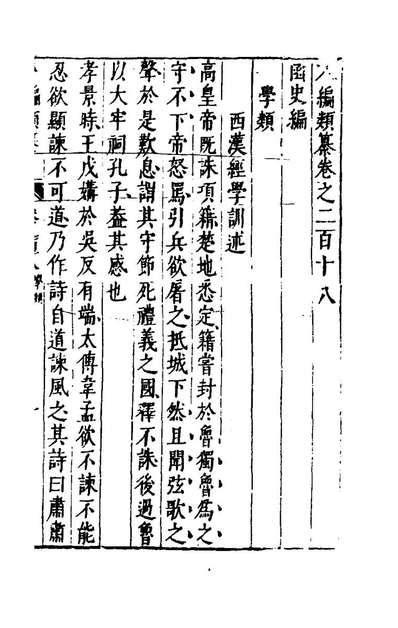 八編類纂卷之二百十八
函史編
學類
西漢經學訓述
高皇帝既誅項籍楚地悉定籍嘗封於魯獨魯為之
守不下帝怒罵引兵欲屠之抵城下然且聞弦歌之
聲於是歎息謂其守節死禮義之國釋不誅後過魯
以大牢祠孔子葢其感也
孝景時王戊媾於吳反有端太傅韋孟欲不諫不能
忍欲顯諫不可道乃作詩自道諫風之其詩曰肅肅